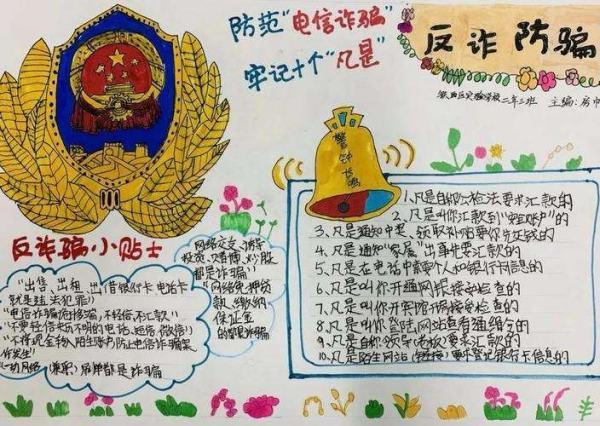 防范"电信诈骗"
牢记十个"凡是"
反诈防骗
实验学校二年三班 主编:房
警钟长鸣
反诈骗小贴士
"出售、出租、出借银行卡、电话卡
就是违法犯罪!"
不轻信、不汇款"
"不要轻信来历不明的电话、短信、微信!"
都是诈骗
网络交友
投资、赌博、炒股
都是诈骗!
"网络免押贷
款、缴纳
保证金
的都是诈骗
1.凡是自称公检法要求汇款的
2.凡是叫你汇款到"安全账户"的
3.凡是通知中奖、领取补贴要你先交钱的
4.凡是通知"家属"出事先要汇款的
5.凡是在电话中索要个人和银行卡信息的
6.凡是叫你开通网银接受检查的
7.凡是叫你开宾馆房接受检查的
8.凡是叫你登陆网站查看通缉令的
9.凡是自称领导(老板)要求汇款的
10.凡是陌生网站(链接)要求登记银行卡信息的